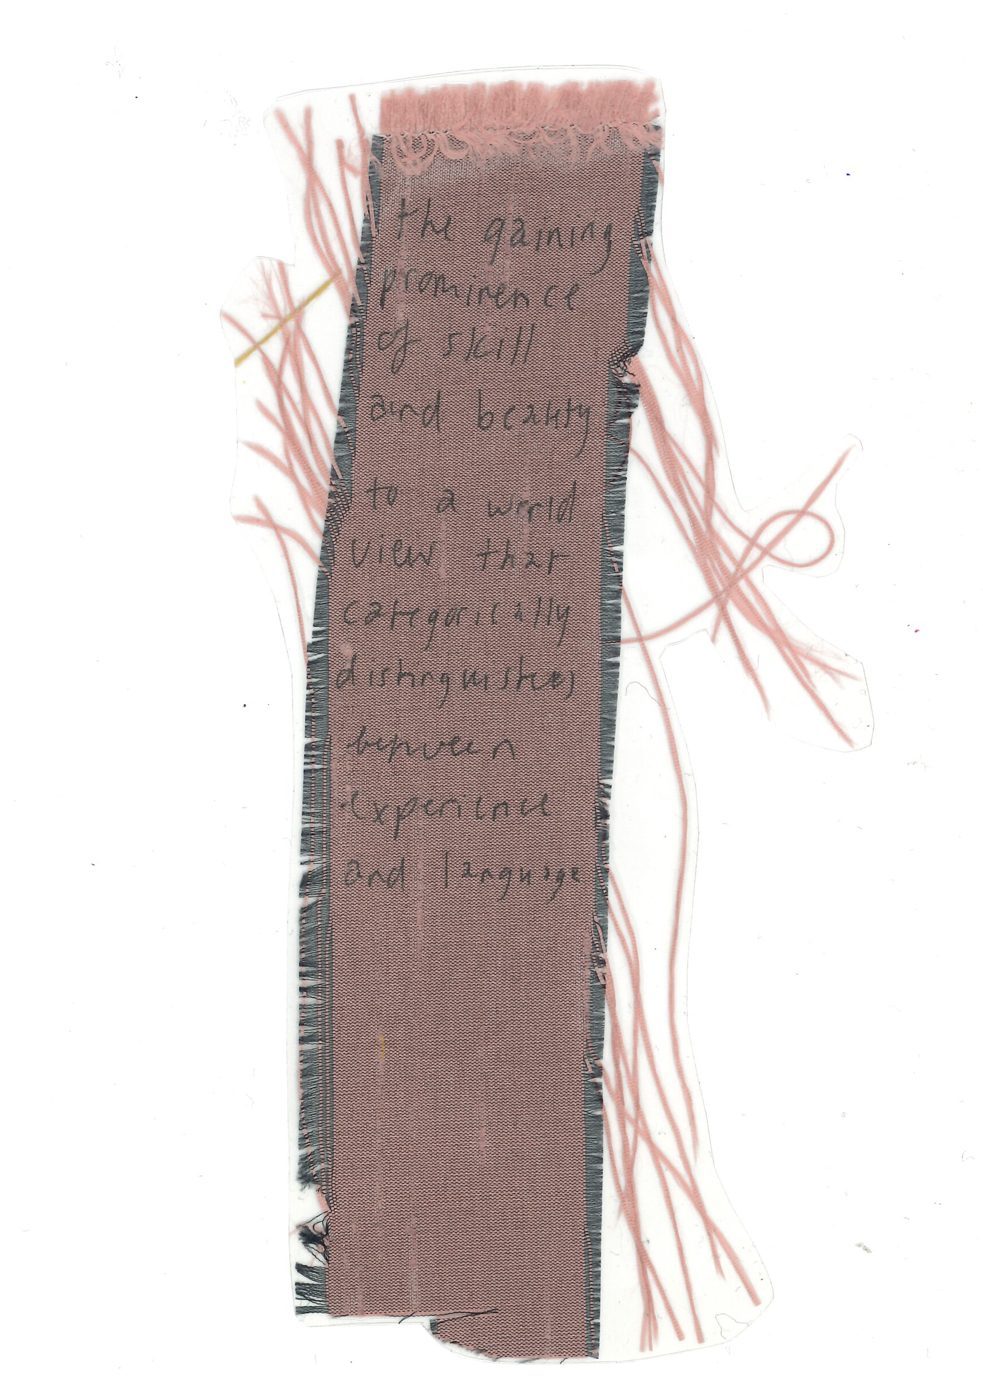 the gaining
prominence
of skill
and beauty
to a world
view that
categorically
distinguishes
between
experience
and language